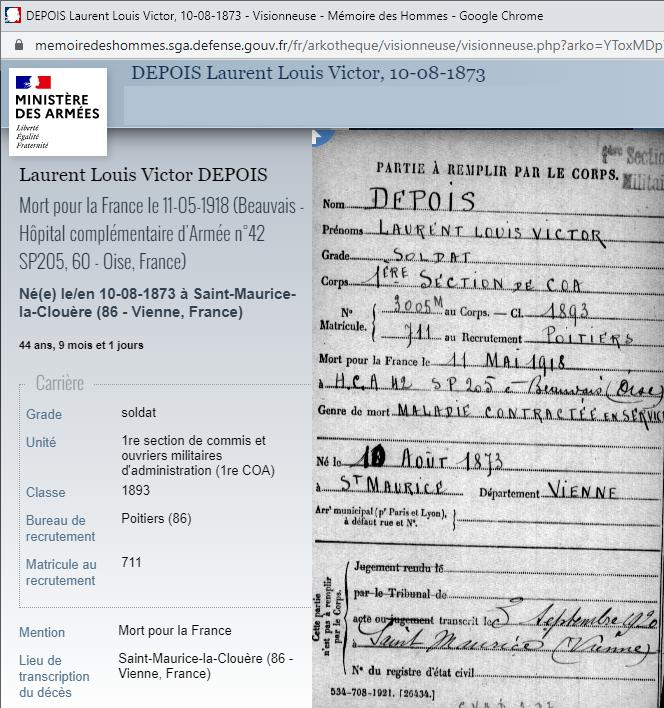 DEPOIS Laurent Louis Victor, 10-08-1873 - Visionneuse - Mémoire des Hommes - Google Chrome
memoiredeshommes.sga.defense.gouv.fr/fr/arkotheque/visionneuse/visionneuse.php?arko=YToxMDp
DEPOIS Laurent Louis Victor, 10-08-1873
MINISTÈRE
DES ARMÉES
Liberté
Égalité
Fraternité
Laurent Louis Victor DEPOIS
Mort pour la France le 11-05-1918 (Beauvais -
Hôpital complémentaire d'Armée n°42
SP205, 60 - Oise, France)
Né(e) le/en 10-08-1873 à Saint-Maurice-
la-Clouère (86 - Vienne, France)
44 ans, 9 mois et 1 jours
Carrière
Grade soldat
Unité 1re section de commis et
ouvriers militaires
d'administration (1re COA)
Classe 1893
Bureau de
recrutement Poitiers (86)
Matricule au
recrutement 711
Mention Mort pour la France
Lieu de
transcription
du décès Saint-Maurice-la-Clouère (86 -
Vienne, France)
Sectio
Militai
PARTIE À REMPLIR PAR LE CORPS.
Nom DEPOIS
Prénoms LAURENT LOUIS VICTOR
Grade SOLDAT
Corps 1ÈRE SECTION DE COA
N° 3005M au Corps. — Cl. 1893
Matricule. 711 au Recrutement POITIERS
Mort pour la France le 11 MAI 1918
à H.C.A 42 SP 205 Beauvais (Oise)
Genre de mort MALADIE CONTRACTÉE EN SERVIC
Né le 10 AOÛT 1873
à ST MAURICE Département VIENNE
Arrt municipal (pr Paris et Lyon),
à défaut rue et N°.
Cette partie
n'est pas à remplir
par le Corps.
Jugement rendu le
par le Tribunal de
acte ou jugement transcrit le 3 Septembre 1920
à Saint Maurice (Vienne)
N° du registre d'état civil
534-708-1921. [26434.]